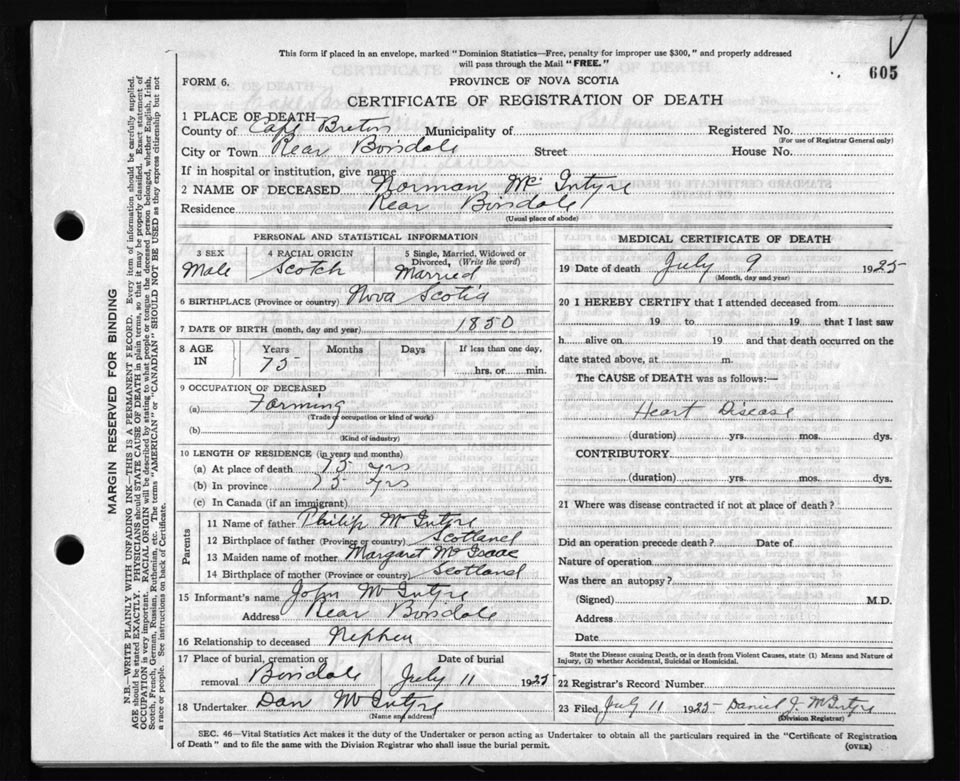 This form if placed in an envelope, marked "Dominion Statistics—Free, penalty for improper use $300," and properly addressed
will pass through the Mail "FREE."
605
FORM 6.
PROVINCE OF NOVA SCOTIA
CERTIFICATE OF REGISTRATION OF DEATH
1 PLACE OF DEATH—
County of Cape Breton Municipality of Registered No.
(For use of Registrar General only)
City or Town Rear Boisdale Street House No.
If in hospital or institution, give name
2 NAME OF DECEASED Norman McIntyre
Residence Rear Boisdale
(Usual place of abode)
PERSONAL AND STATISTICAL INFORMATION
3 SEX 4 RACIAL ORIGIN 5 Single, Married, Widowed or
Divorced, (Write the word)
Male Scotch Married
6 BIRTHPLACE (Province or country) Nova Scotia
7 DATE OF BIRTH (month, day and year) 1850
8 AGE IN Years Months Days If less than one day,
75 hrs. or min.
9 OCCUPATION OF DECEASED
(a) Farming
(Trade or occupation or kind of work)
(b)
(Kind of industry)
10 LENGTH OF RESIDENCE (in years and months)
(a) At place of death 75 yrs
(b) In province 75 yrs
(c) In Canada (if an immigrant)
Parents
11 Name of father Philip McIntyre
12 Birthplace of father (Province or country) Scotland
13 Maiden name of mother Margaret McIsaac
14 Birthplace of mother (Province or country) Scotland
15 Informant's name John McIntyre
Address Rear Boisdale
16 Relationship to deceased Nephew
17 Place of burial, cremation or Date of burial
removal Boisdale July 11 1925
18 Undertaker Dan McIntyre
(Name and address)
MEDICAL CERTIFICATE OF DEATH
19 Date of death July 9 1925
(Month, day and year)
20 I HEREBY CERTIFY that I attended deceased from
19 to 19 that I last saw
h alive on 19 and that death occurred on the
date stated above, at m.
The CAUSE of DEATH was as follows:—
Heart Disease
(duration) yrs. mos. dys.
CONTRIBUTORY
(duration) yrs. mos. dys.
21 Where was disease contracted if not at place of death?
Did an operation precede death? Date of
Nature of operation
Was there an autopsy?
(Signed) M.D.
Address
Date
State the Disease causing Death, or in death from Violent Causes, state (1) Means and Nature of
Injury, (2) whether Accidental, Suicidal or Homicidal.
22 Registrar's Record Number
23 Filed July 11 1925 Daniel J. McIntyre
(Division Registrar)
SEC. 46—Vital Statistics Act makes it the duty of the Undertaker or person acting as Undertaker to obtain all the particulars required in the "Certificate of Registration
of Death" and to file the same with the Division Registrar who shall issue the burial permit.
(OVER)
MARGIN RESERVED FOR BINDING
N.B.—WRITE PLAINLY WITH UNFADING INK—THIS IS A PERMANENT RECORD. Every item of information should be carefully supplied.
AGE should be stated EXACTLY. PHYSICIANS should STATE CAUSE OF DEATH in plain terms, so that it may be properly classified. Exact statement of
OCCUPATION is very important. RACIAL ORIGIN will be described by stating to what people or tongue the deceased person belonged, whether English, Irish,
Scotch, French, German, Russian, Ruthenian, etc. The terms "AMERICAN" or "CANADIAN" SHOULD NOT BE USED as they express citizenship but not
a race or people. See instructions on back of Certificate.